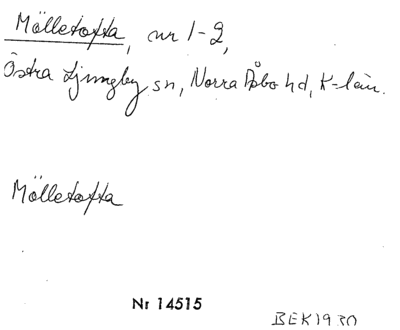 Mölletofta, nr 1-2,
Östra Ljungby sn, Norra Åsbo hd, K-län.
Mölletofta
Nr 14515
BEK1930